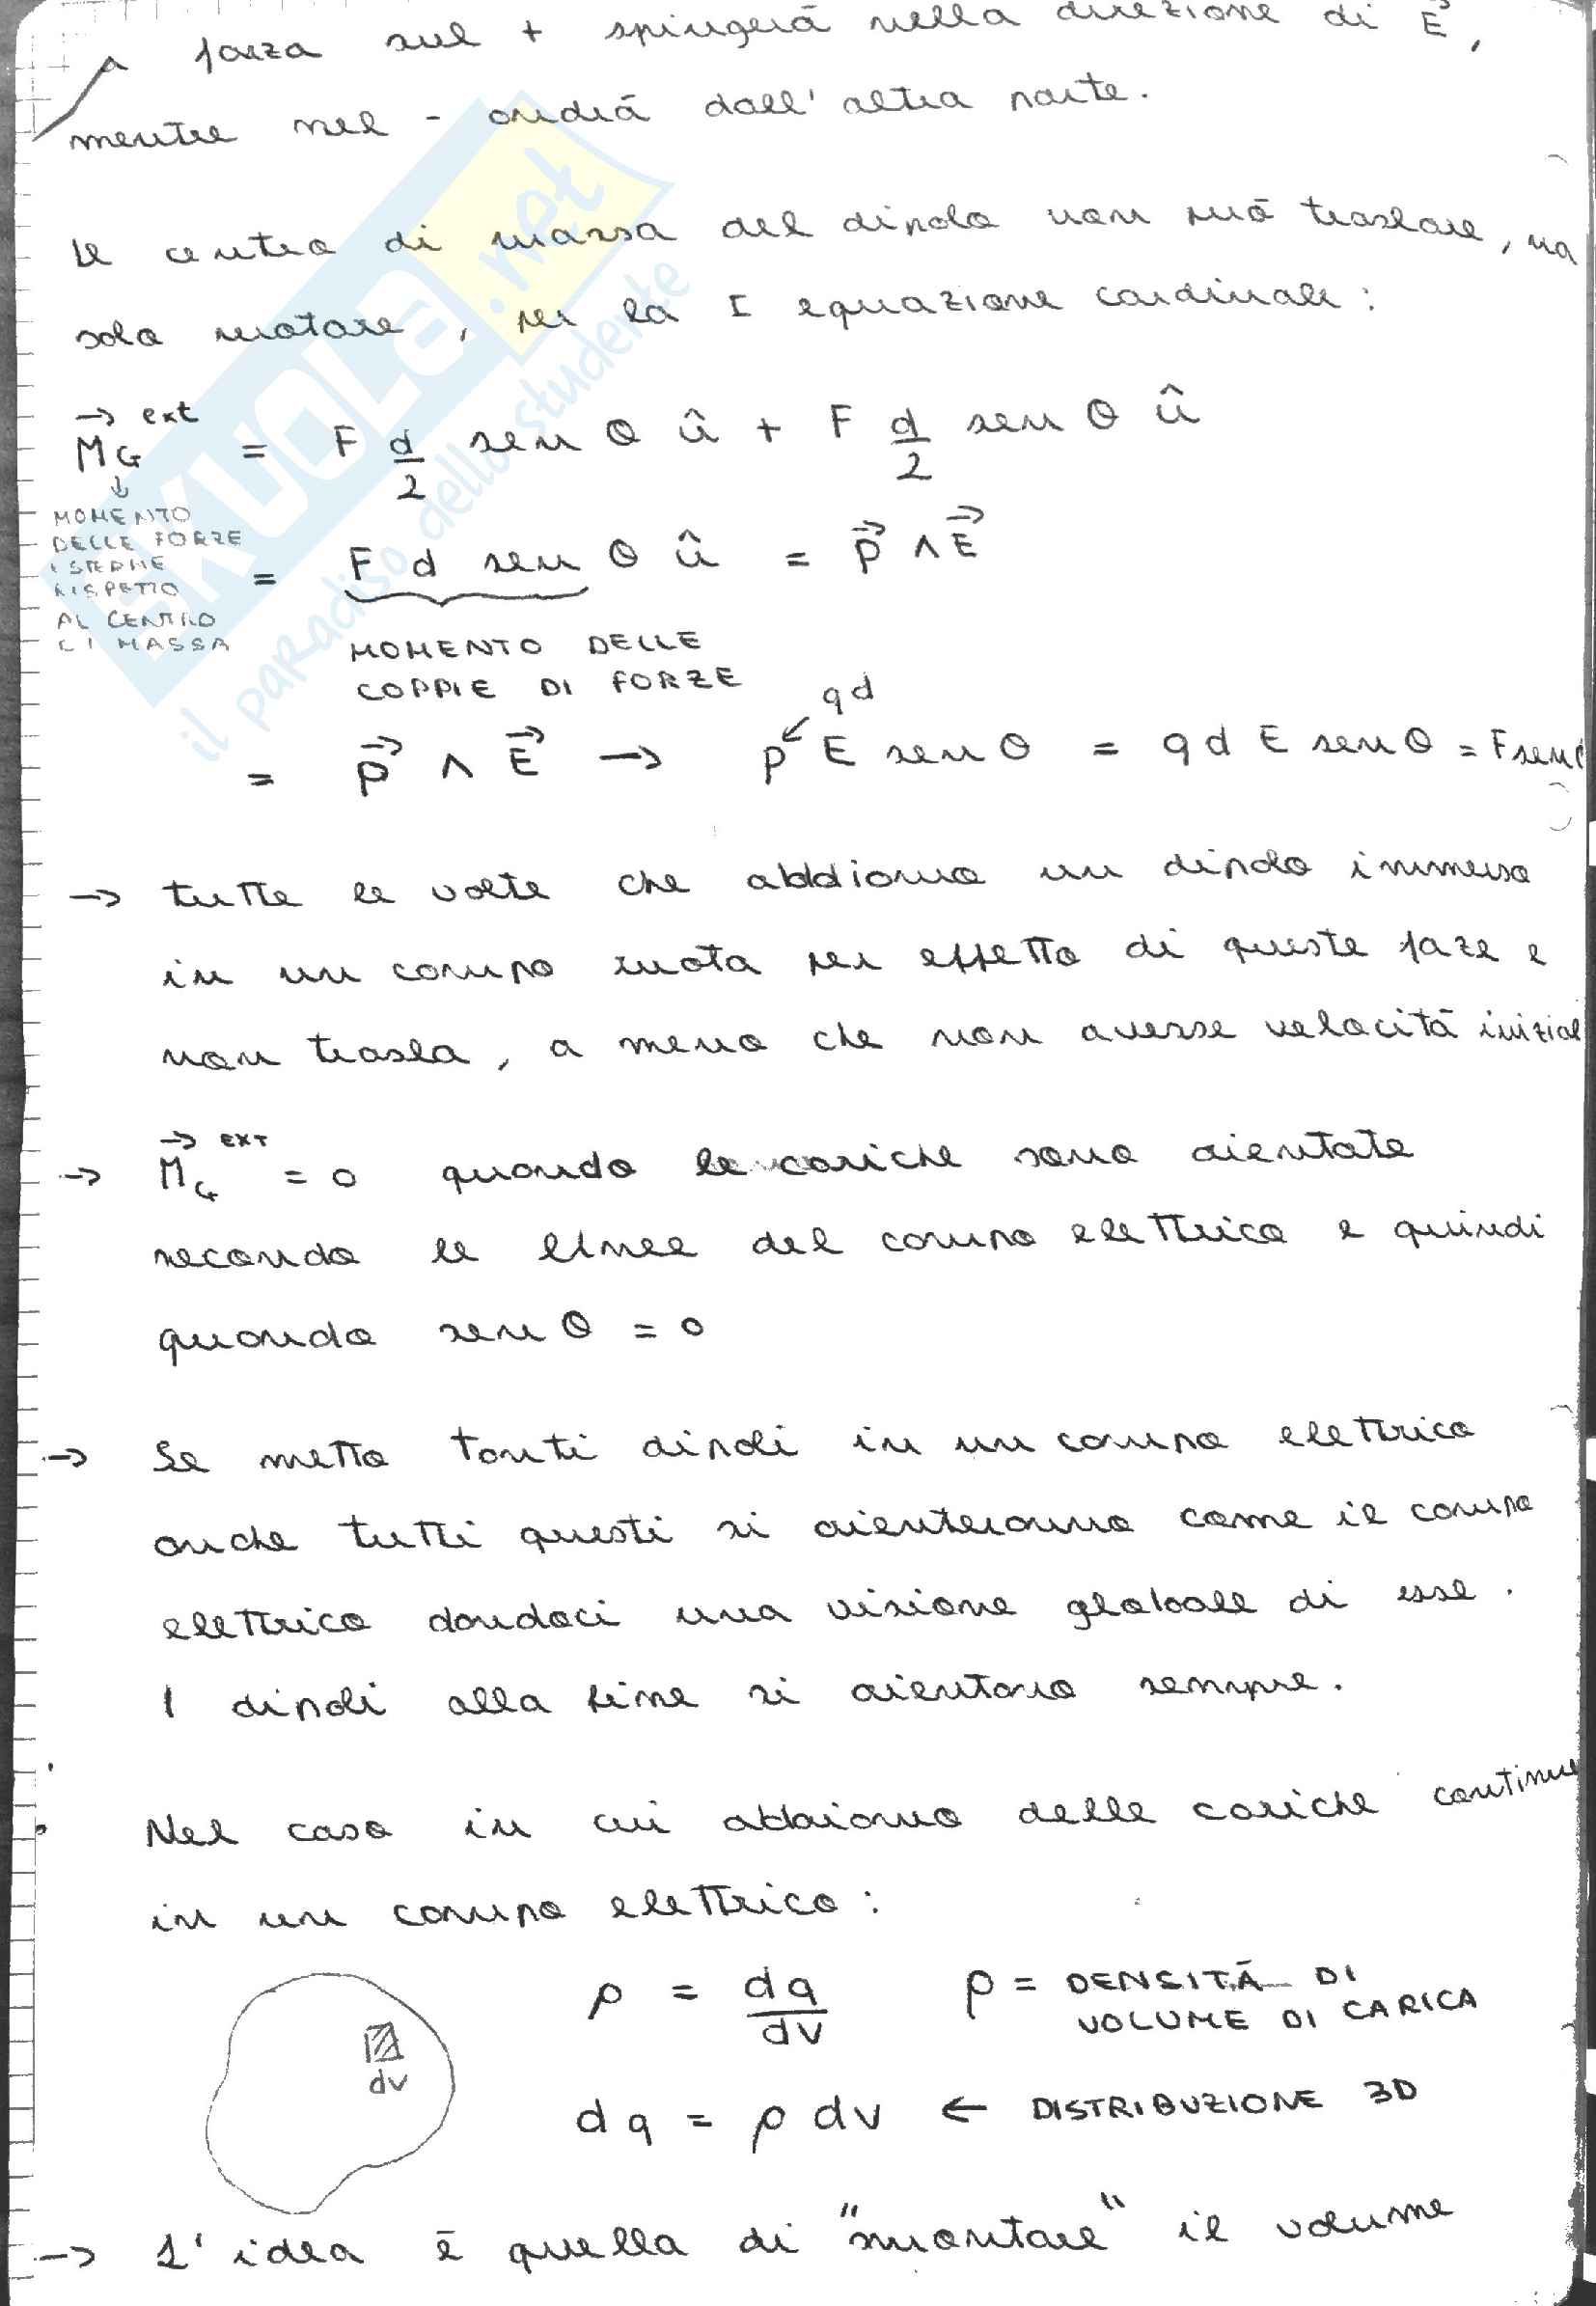 forza sul + spingerà nella direzione di E⃗,
mentre nel - andrà dall'altra parte.
Il centro di massa del dipolo non può traslare, ma
solo ruotare, per la I equazione cardinale:
M⃗G ext = F d/2 sen θ û + F d/2 sen θ û
↓
MOMENTO
DELLE FORZE
ESTERNE
RISPETTO
AL CENTRO
DI MASSA
= F d sen θ û = p⃗ ∧ E⃗
MOMENTO DELLE
COPPIE DI FORZE
qd
= p⃗ ∧ E⃗ → p E sen θ = q d E sen θ = F sen
→ tutte le volte che abbiamo un dipolo immerso
in un campo ruota per effetto di queste forze e
non trasla, a meno che non avesse velocità inizial
→ M⃗G EXT = 0 quando le cariche sono orientate
secondo le linee del campo elettrico e quindi
quando sen θ = 0
→ Se metto tanti dipoli in un campo elettrico
anche tutti questi si orienteranno come il campo
elettrico dandoci una visione globale di esse.
I dipoli alla fine si orientano sempre.
Nel caso in cui abbiamo delle cariche continue
in un campo elettrico:
ρ = dq/dv ρ = DENSITÀ DI
VOLUME DI CARICA
dv
dq = ρ dv ← DISTRIBUZIONE 3D
→ L'idea è quella di "smontare" il volume
SKUOLA.net
il paradiso dello studente